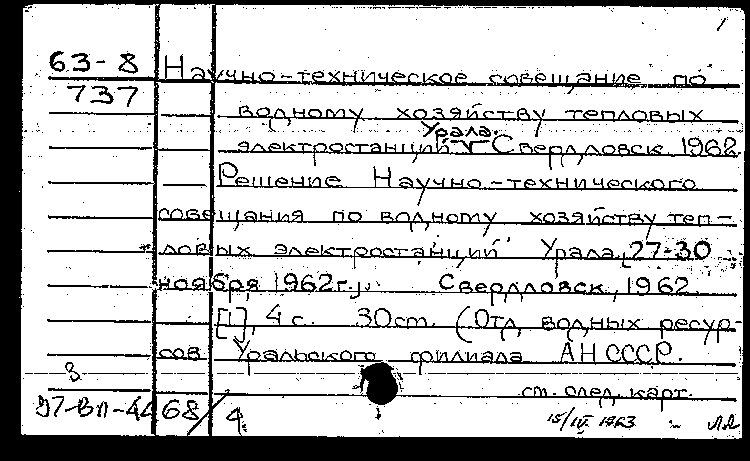 1
63-8 Научно-техническое совещание по
737
водному хозяйству тепловых
Урала.
электростанций V Свердловск 1962
Решение Научно-технического
совещания по водному хозяйству теп-
ловых электростанций Урала, [27-30
ноября 1962 г.]. Свердловск, 1962.
[1], 4 с. 30 cm. (Отд. водных ресур-
сов Уральского филиала АН СССР.
8
см. след. карт.
68/4
15/IV 1963